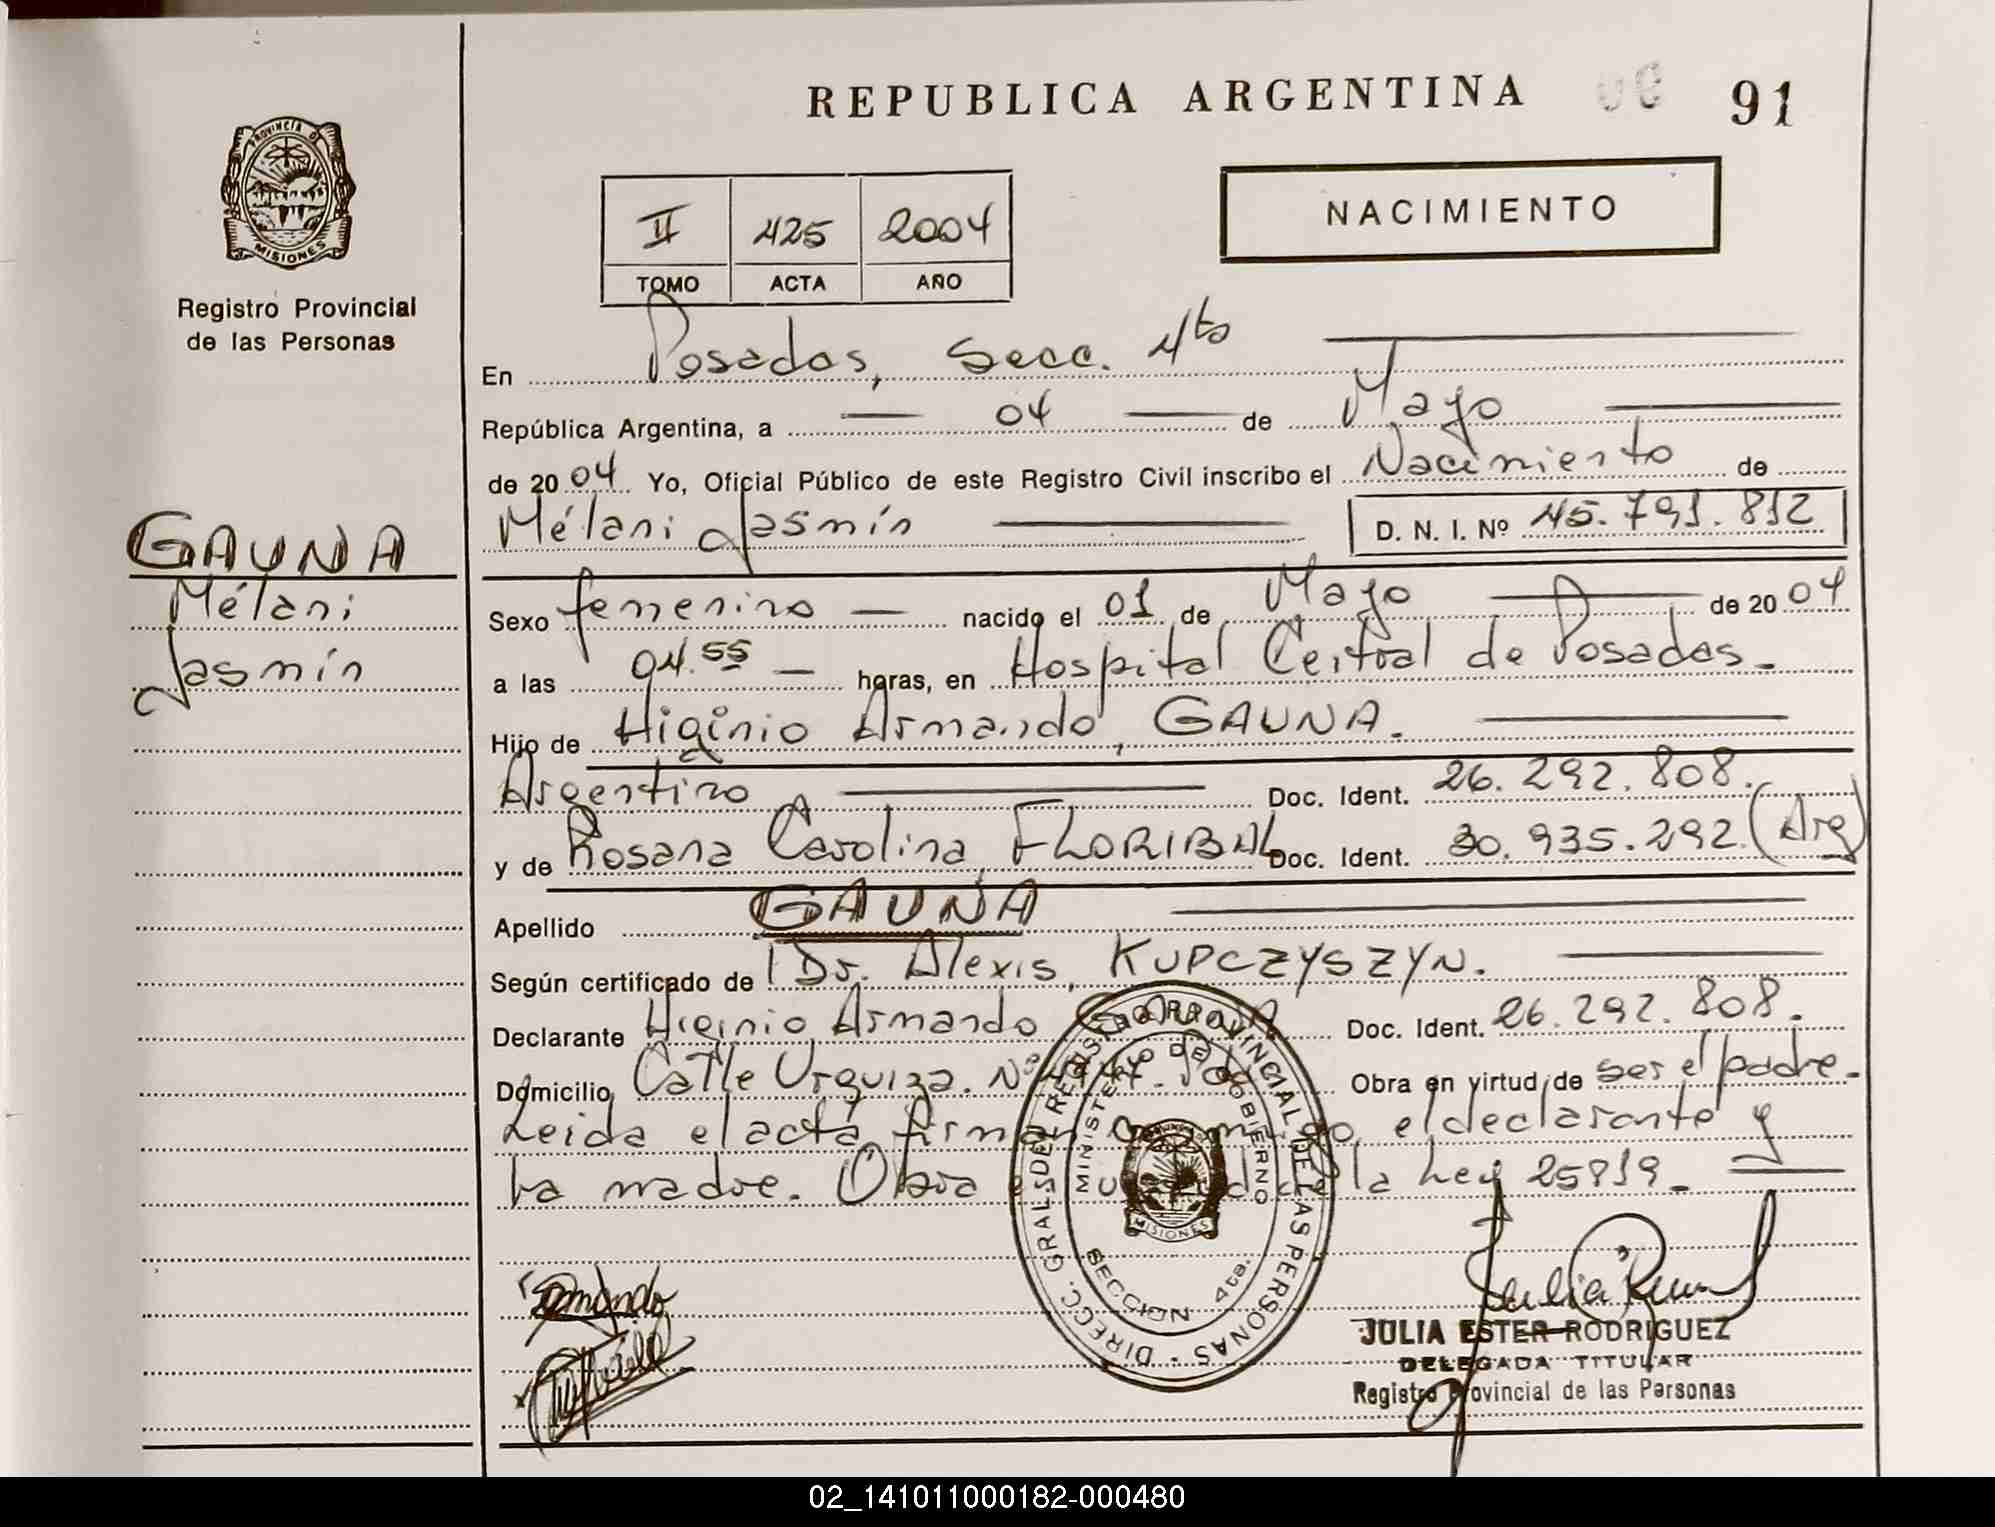 REPUBLICA ARGENTINA
91
PROVINCIA D
MISIONES
Registro Provincial
de las Personas
II 425 2004
TOMO ACTA AÑO
NACIMIENTO
En Posadas, Secc. 4ta
República Argentina, a 04 de Mayo
de 2004 Yo, Oficial Público de este Registro Civil inscribo el Nacimiento de
Mélani Jasmín D. N. I. Nº 45.791.812
GAUNA
Mélani
Jasmín
Sexo femenino nacido el 01 de Mayo de 2004
a las 04.55 horas, en Hospital Central de Posadas.
Hijo de Higinio Armando, GAUNA.
Argentino Doc. Ident. 26.292.808.
y de Rosana Carolina, FLORIBAL Doc. Ident. 30.935.292. (Arg)
Apellido GAUNA
Según certificado de Dr. Alexis, KUPCZYSZYN.
Declarante Higinio Armando Doc. Ident. 26.292.808.
Domicilio Calle Urquiza. Nº Obra en virtud de ser el padre.
Leida el acta firman conmigo, el declarante y
la madre. Obra la Ley 25819.
DIRECC. GRAL. DEL REGISTRO PROVINCIAL DE LAS PERSONAS
MINISTERIO DE GOBIERNO
MISIONES
SECCION 4ta.
JULIA ESTER RODRIGUEZ
DELEGADA TITULAR
Registro Provincial de las Personas
02_141011000182-000480